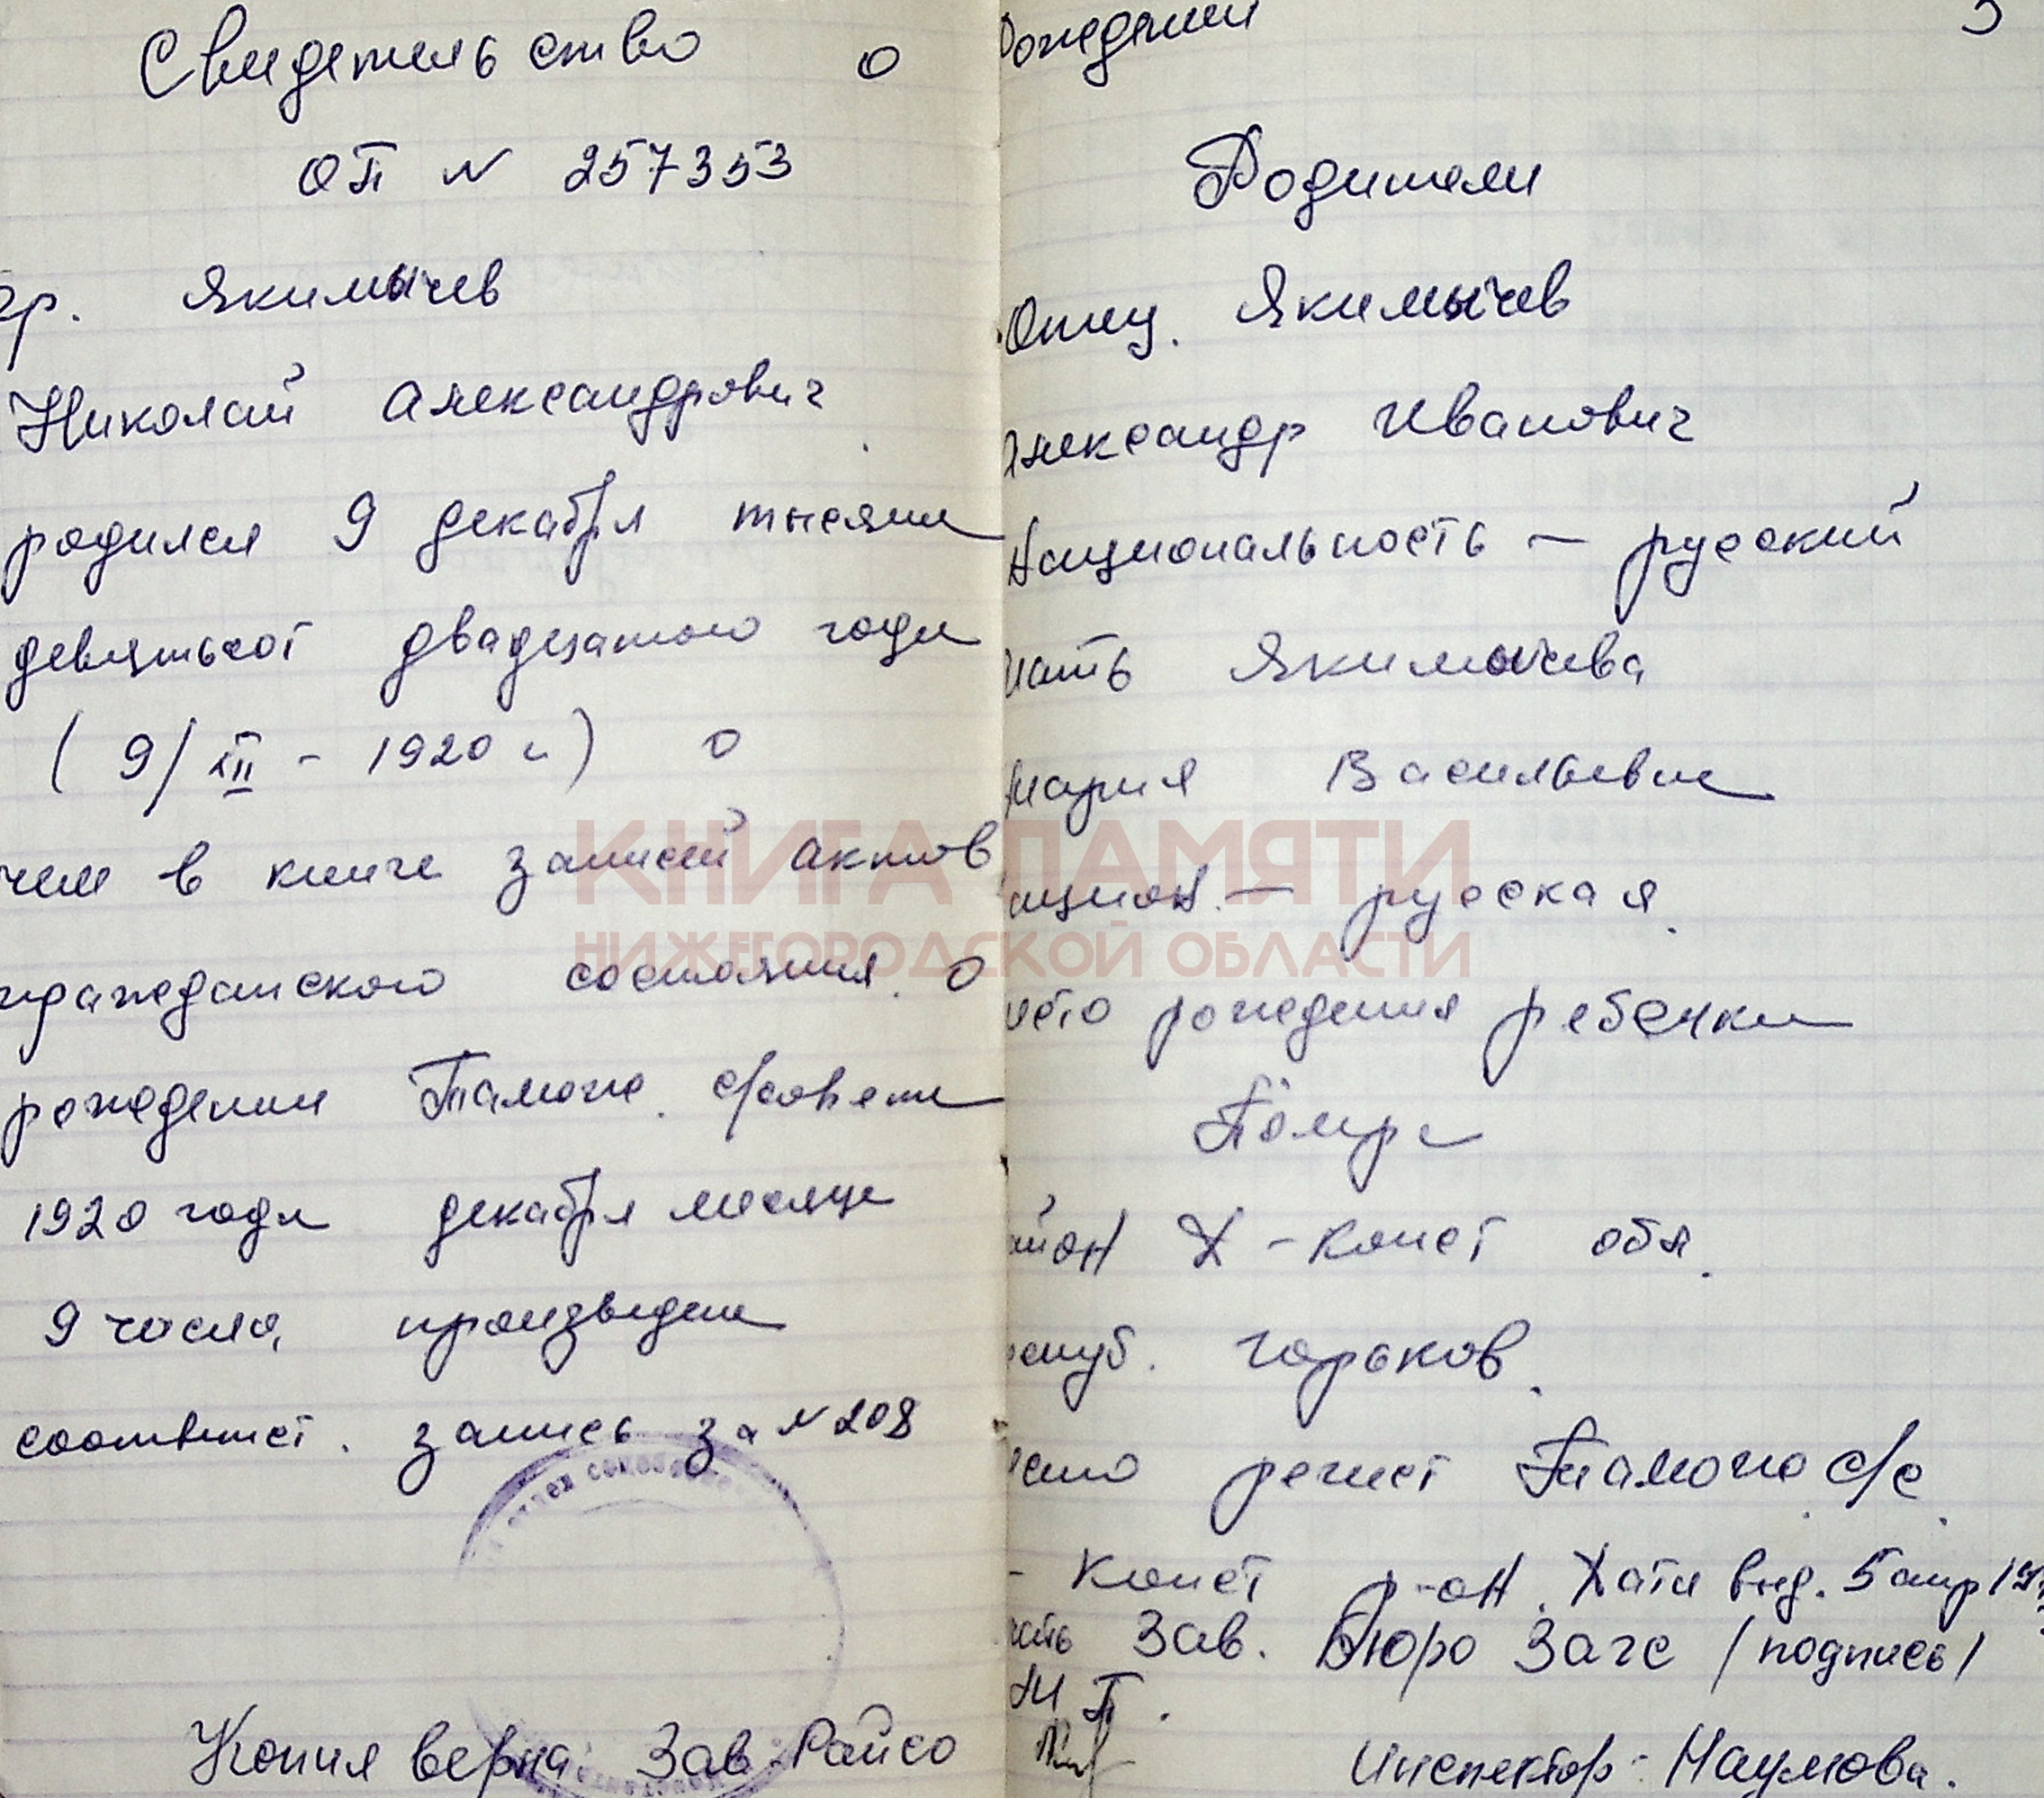 Свидетельство о
ОП N 257353
гр. Якимычев
Николай Александрович
родился 9 декабря тысяча
девятьсот двадцатого года
(9/XII - 1920 г) о
чем в книге записей актов
гражданского состояния о
рождении с/совета
1920 года декабря месяца
9 числа, произведена
соответст. запись за N 208
Копия верна Зав. Райсо
Рождении
Родители
Отец. Якимычев
Александр Иванович
Национальность - русский
мать Якимычева
Мария Васильевна
национ. - русская.
место рождения ребенка
район Х-Конст обл.
респуб. Горьков.
место регист с/с
- Конст р-он. Дата выд. 5 апр
Зав. Бюро Загс /подпись/
М П.
Инспектор: Наумова.
КНИГА ПАМЯТИ
НИЖЕГОРОДСКОЙ ОБЛАСТИ